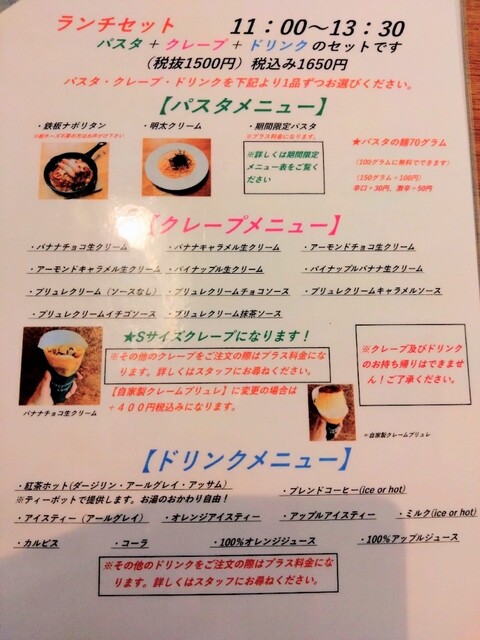 ランチセット　11：00～13：30
パスタ＋クレープ＋ドリンクのセットです
（税抜1500円）税込み1650円
パスタ・クレープ・ドリンクを下記より1品ずつお選びください。
【パスタメニュー】
・鉄板ナポリタン　・明太クリーム　・期間限定パスタ
※プラス料金になります。
※詳しくは期間限定
メニュー表をご覧く
ださい
★パスタの麺70グラム
（100グラムに無料でできます）
（150グラム＋100円）
辛口＋30円、激辛＋50円
【クレープメニュー】
・バナナチョコ生クリーム　・バナナキャラメル生クリーム　・アーモンドチョコ生クリーム
・アーモンドキャラメル生クリーム　・パイナップル生クリーム　・パイナップルバナナ生クリーム
・ブリュレクリーム（ソースなし）　・ブリュレクリームチョコソース　・ブリュレクリームキャラメルソース
・ブリュレクリームイチゴソース　・ブリュレクリーム抹茶ソース
★Sサイズクレープになります！
※その他のクレープをご注文の際はプラス料金にな
ります。詳しくはスタッフにお尋ねください。
【自家製クレームブリュレ】に変更の場合は
＋４００円税込みになります。
※クレープ及びドリンク
のお持ち帰りはできませ
ん！ご了承ください。
バナナチョコ生クリーム
＝自家製クレームブリュレ
【ドリンクメニュー】
・紅茶ホット(ダージリン・アールグレイ・アッサム)
※ティーポットで提供します。お湯のおかわり自由！
・ブレンドコーヒー(ice or hot)
・アイスティー（アールグレイ）　・オレンジアイスティー　・アップルアイスティー　・ミルク(ice or hot)
・カルピス　・コーラ　・100％オレンジジュース　・100％アップルジュース
※その他のドリンクをご注文の際はプラス料金にな
ります。詳しくはスタッフにお尋ねください。